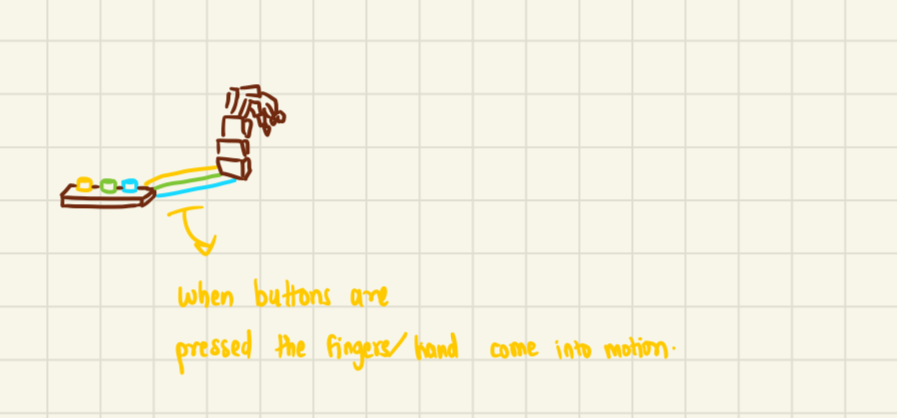 when buttons are
pressed the fingers/hand come into motion.